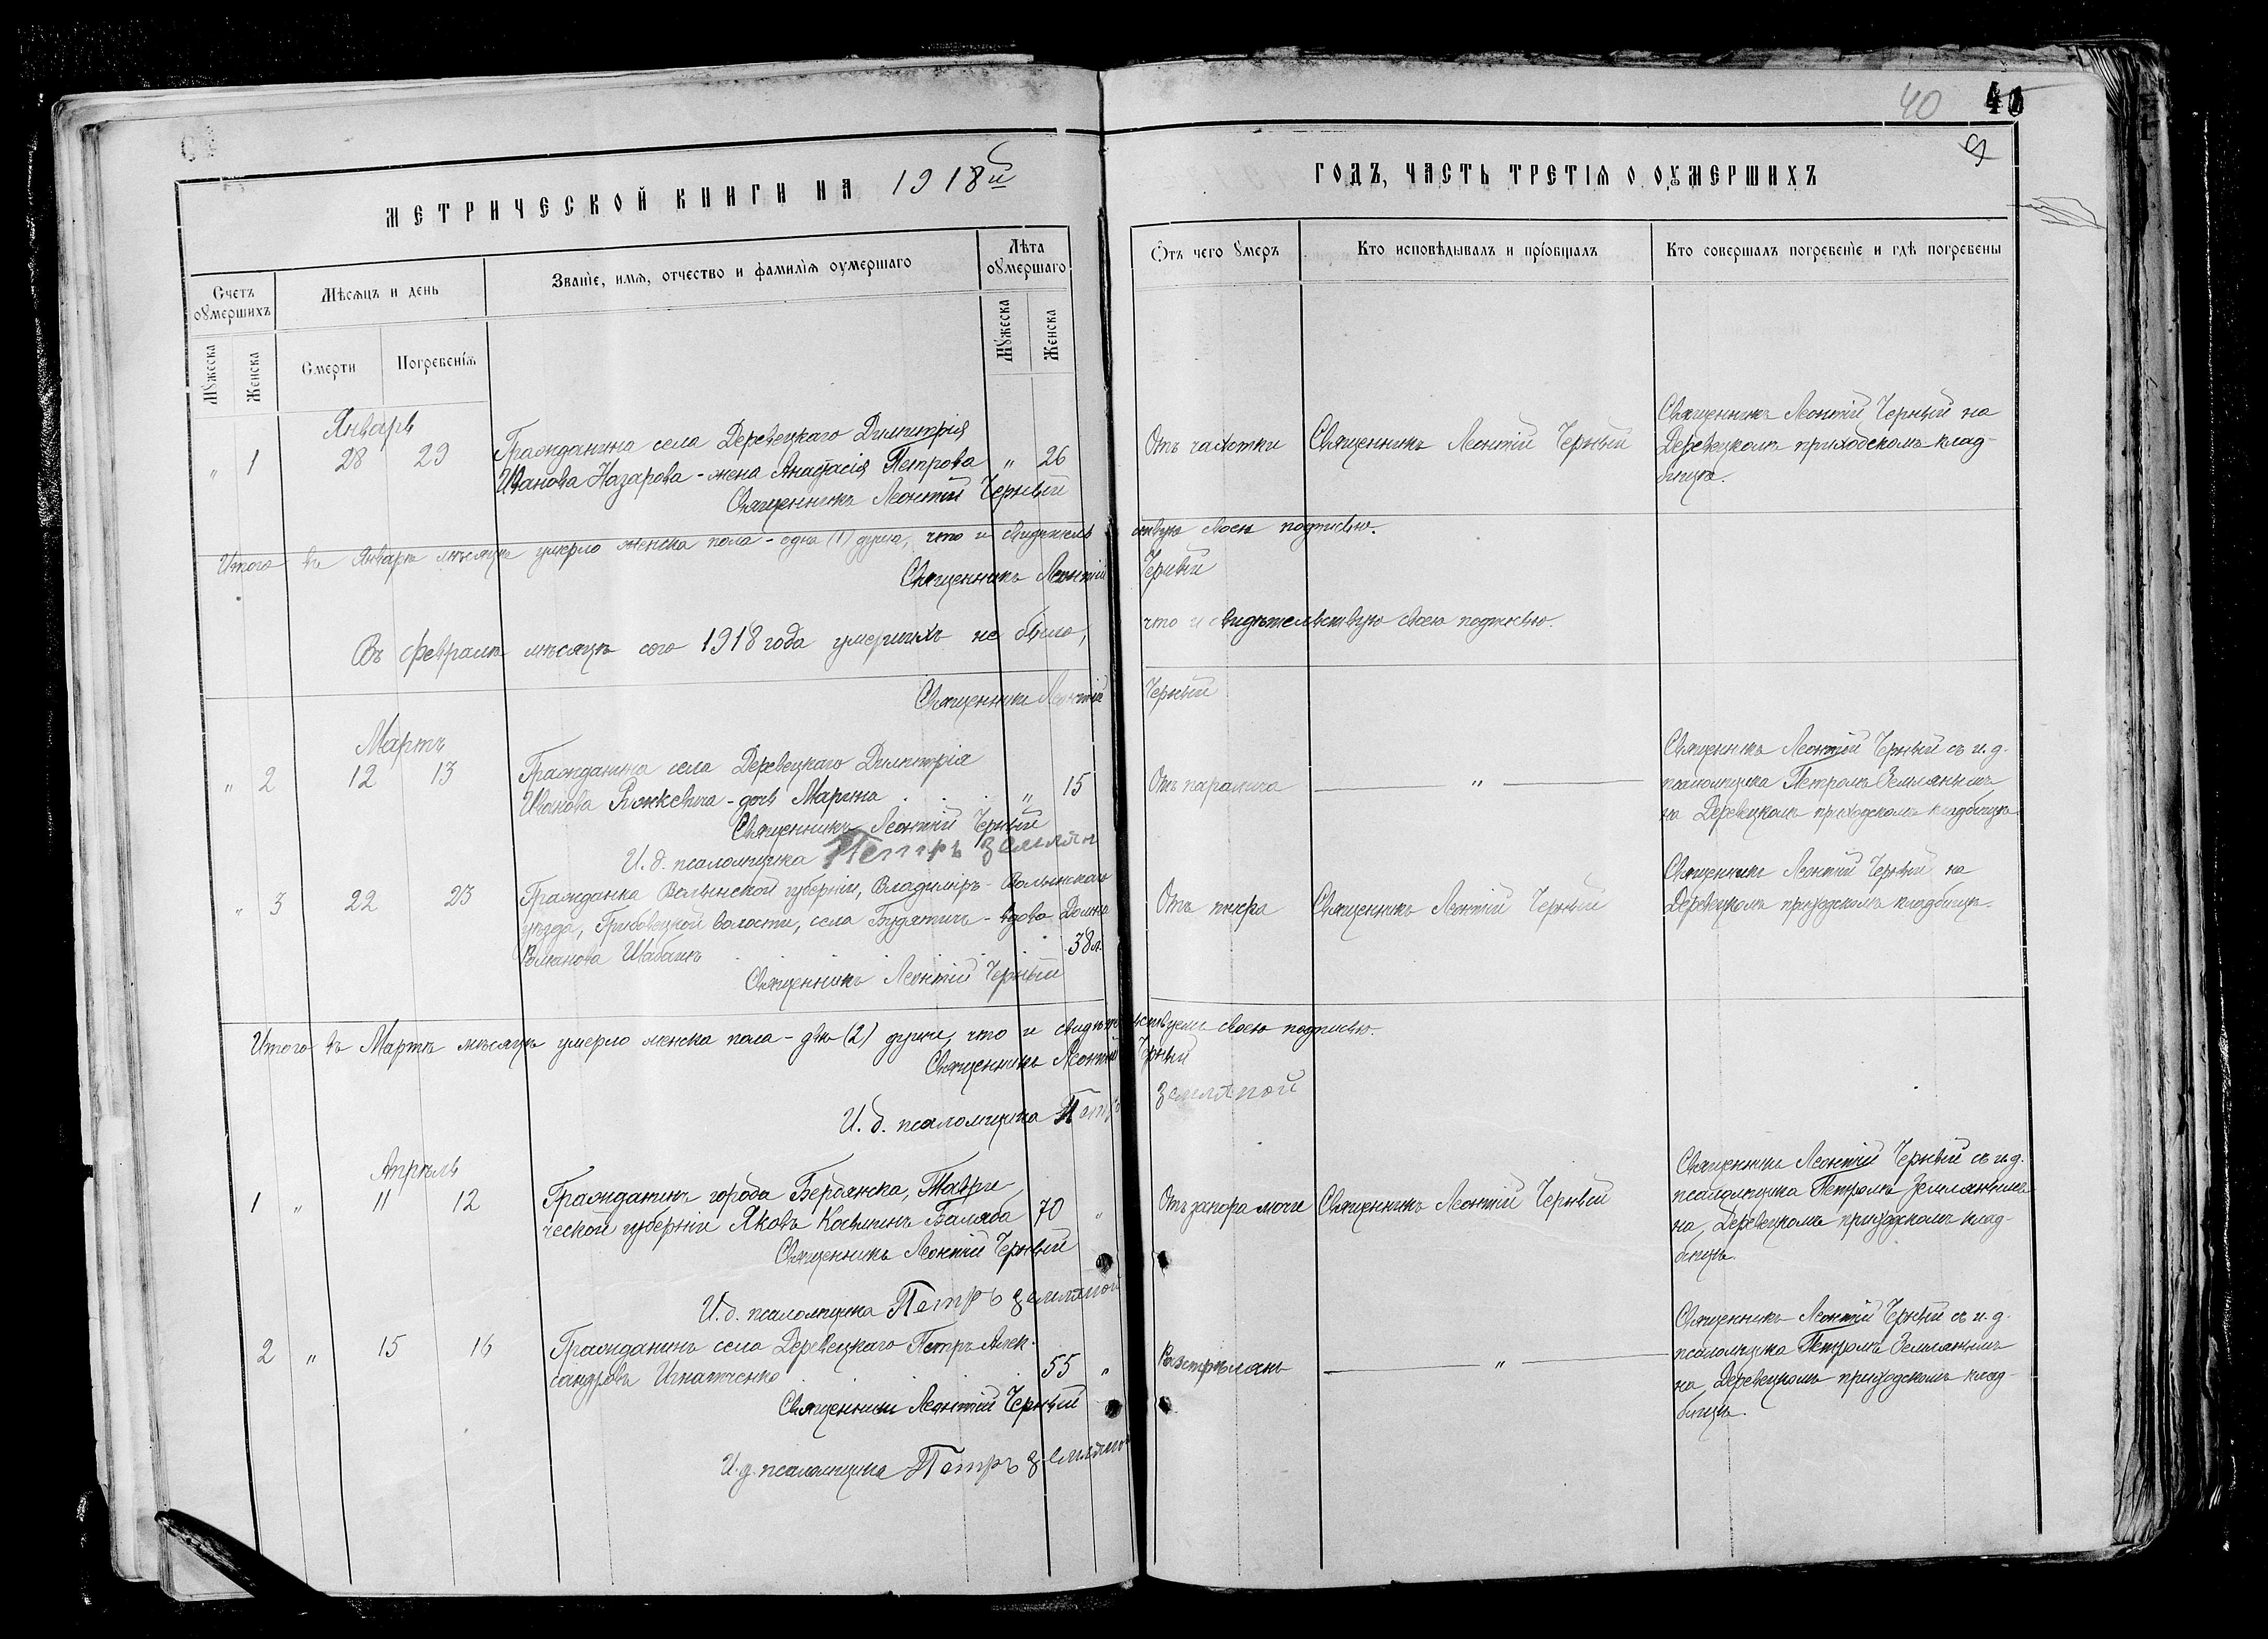 40 41
МЕТРИЧЕСКОЙ КНИГИ НА 1918й
ГОДЪ, ЧАСТЬ ТРЕТІЯ О ОУМЕРШИХЪ
Счетъ оумершихъ
Мѣсяцъ и день
Званіе, имя, отчество и фамилія оумершаго
Лѣта оумершаго
Отъ чего умеръ
Кто исповѣдывалъ и пріобщалъ
Кто совершалъ погребеніе и гдѣ погребены
Мужеска
Женска
Смерти
Погребенія
Мужеска
Женска
Январь
" 1 28 29
Гражданина села Деревецкаго Димитрія
Иванова Назарова - жена Анастасія Петрова " 26
Священникъ Леонтій Черный
Отъ чахотки
Священникъ Леонтій Черный
Священникъ Леонтій Черный на
Деревецкомъ приходскомъ клад-
бищѣ.
Итого въ Январѣ мѣсяцѣ умерло женска пола - одна (1) душа, что и свидѣтель ствую своею подписью.
Священникъ Леонтій Черный
Въ Февралѣ мѣсяцѣ сего 1918 года умершихъ не было, что и свидѣтельствую своею подписью.
Священникъ Леонтій Черный
Мартъ
" 2 12 13
Гражданина села Деревецкаго Димитрія
Иванова - дочь Марина " 15
Священникъ Леонтій Черный
И. д. псаломщика Петръ Землян
Отъ паралича
"
Священникъ Леонтій Черный съ и. д.
псаломщика Петромъ Землянымъ
на Деревецкомъ приходскомъ кладбищѣ
" 3 22 23
Гражданка Волынской губерніи, Владиміръ - Волынскаго
уѣзда, Грибовецкой волости, села Будятичъ - вдова Домна
Романова Шабатъ 38 л.
Священникъ Леонтій Черный
Отъ
Священникъ Леонтій Черный
Священникъ Леонтій Черный на
Деревецкомъ приходскомъ кладбищѣ.
Итого въ Мартѣ мѣсяцѣ умерло женска пола - двѣ (2) души, что и свидѣтельствуемъ своею подписью.
Священникъ Леонтій Черный
И. д. псаломщика Петръ Земляной
Апрѣль
1 " 11 12
Гражданинъ города Бердянска, Таври-
ческой губерніи Яковъ Косьминъ Баляба 70 "
Священникъ Леонтій Черный
И. д. псаломщика Петръ Земляной
Отъ запора мочи
Священникъ Леонтій Черный
Священникъ Леонтій Черный съ и. д.
псаломщика Петромъ Землянымъ
на Деревецкомъ приходскомъ клад-
бищѣ.
2 " 15 16
Гражданинъ села Деревецкаго Петръ Алек-
сандровъ Игнатченко 55 "
Священникъ Леонтій Черный
И. д. псаломщика Петръ Земляной
Разстрѣлянъ
"
Священникъ Леонтій Черный съ и. д.
псаломщика Петромъ Землянымъ
на Деревецкомъ приходскомъ клад-
бищѣ.